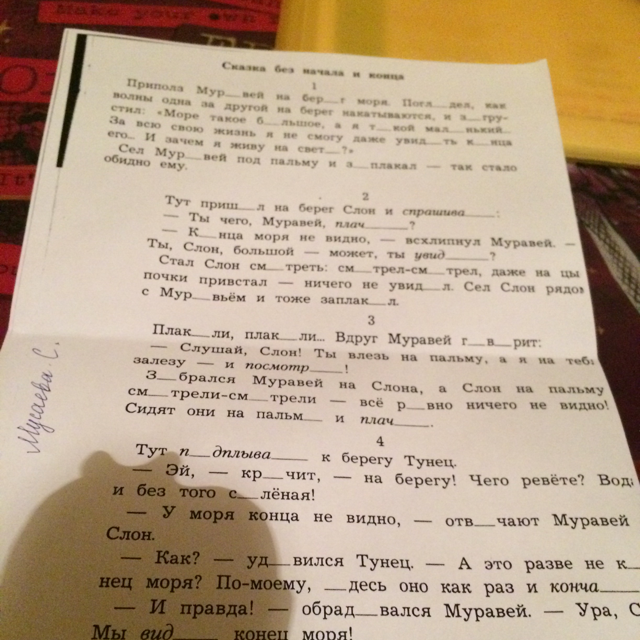 Make your own
Сказка без начала и конца
1
Приполз Мур__вей на бер__г моря. Погл__дел, как
волны одна за другой на берег накатываются, и з__гру-
стил: «Море такое б__льшое, а я т__кой мал__нький...
За всю свою жизнь я не смогу даже увид__ть к__нца
его... И зачем я живу на свет__?»
Сел Мур__вей под пальму и з__плакал — так стало
обидно ему.
2
Тут приш__л на берег Слон и спрашива____:
— Ты чего, Муравей, плач____?
— К__нца моря не видно, — всхлипнул Муравей. —
Ты, Слон, большой — может, ты увид____?
Стал Слон см__треть: см__трел-см__трел, даже на цы
почки привстал — ничего не увид__л. Сел Слон рядо
с Мур__вьём и тоже заплак__л.
3
Плак__ли, плак__ли... Вдруг Муравей г__в__рит:
— Слушай, Слон! Ты влезь на пальму, а я на теб
залезу — и посмотр____!
З__брался Муравей на Слона, а Слон на пальму
см__трели-см__трели — всё р__вно ничего не видно!
Сидят они на пальм__ и плач____.
4
Тут п__дплыва____ к берегу Тунец.
— Эй, — кр__чит, — на берегу! Чего ревёте? Вод
и без того с__лёная!
— У моря конца не видно, — отв__чают Муравей
Слон.
— Как? — уд__вился Тунец. — А это разве не к__
нец моря? По-моему, __десь оно как раз и конча____
— И правда! — обрад__вался Муравей. — Ура, С
Мы вид____ конец моря!
Мусаева С.